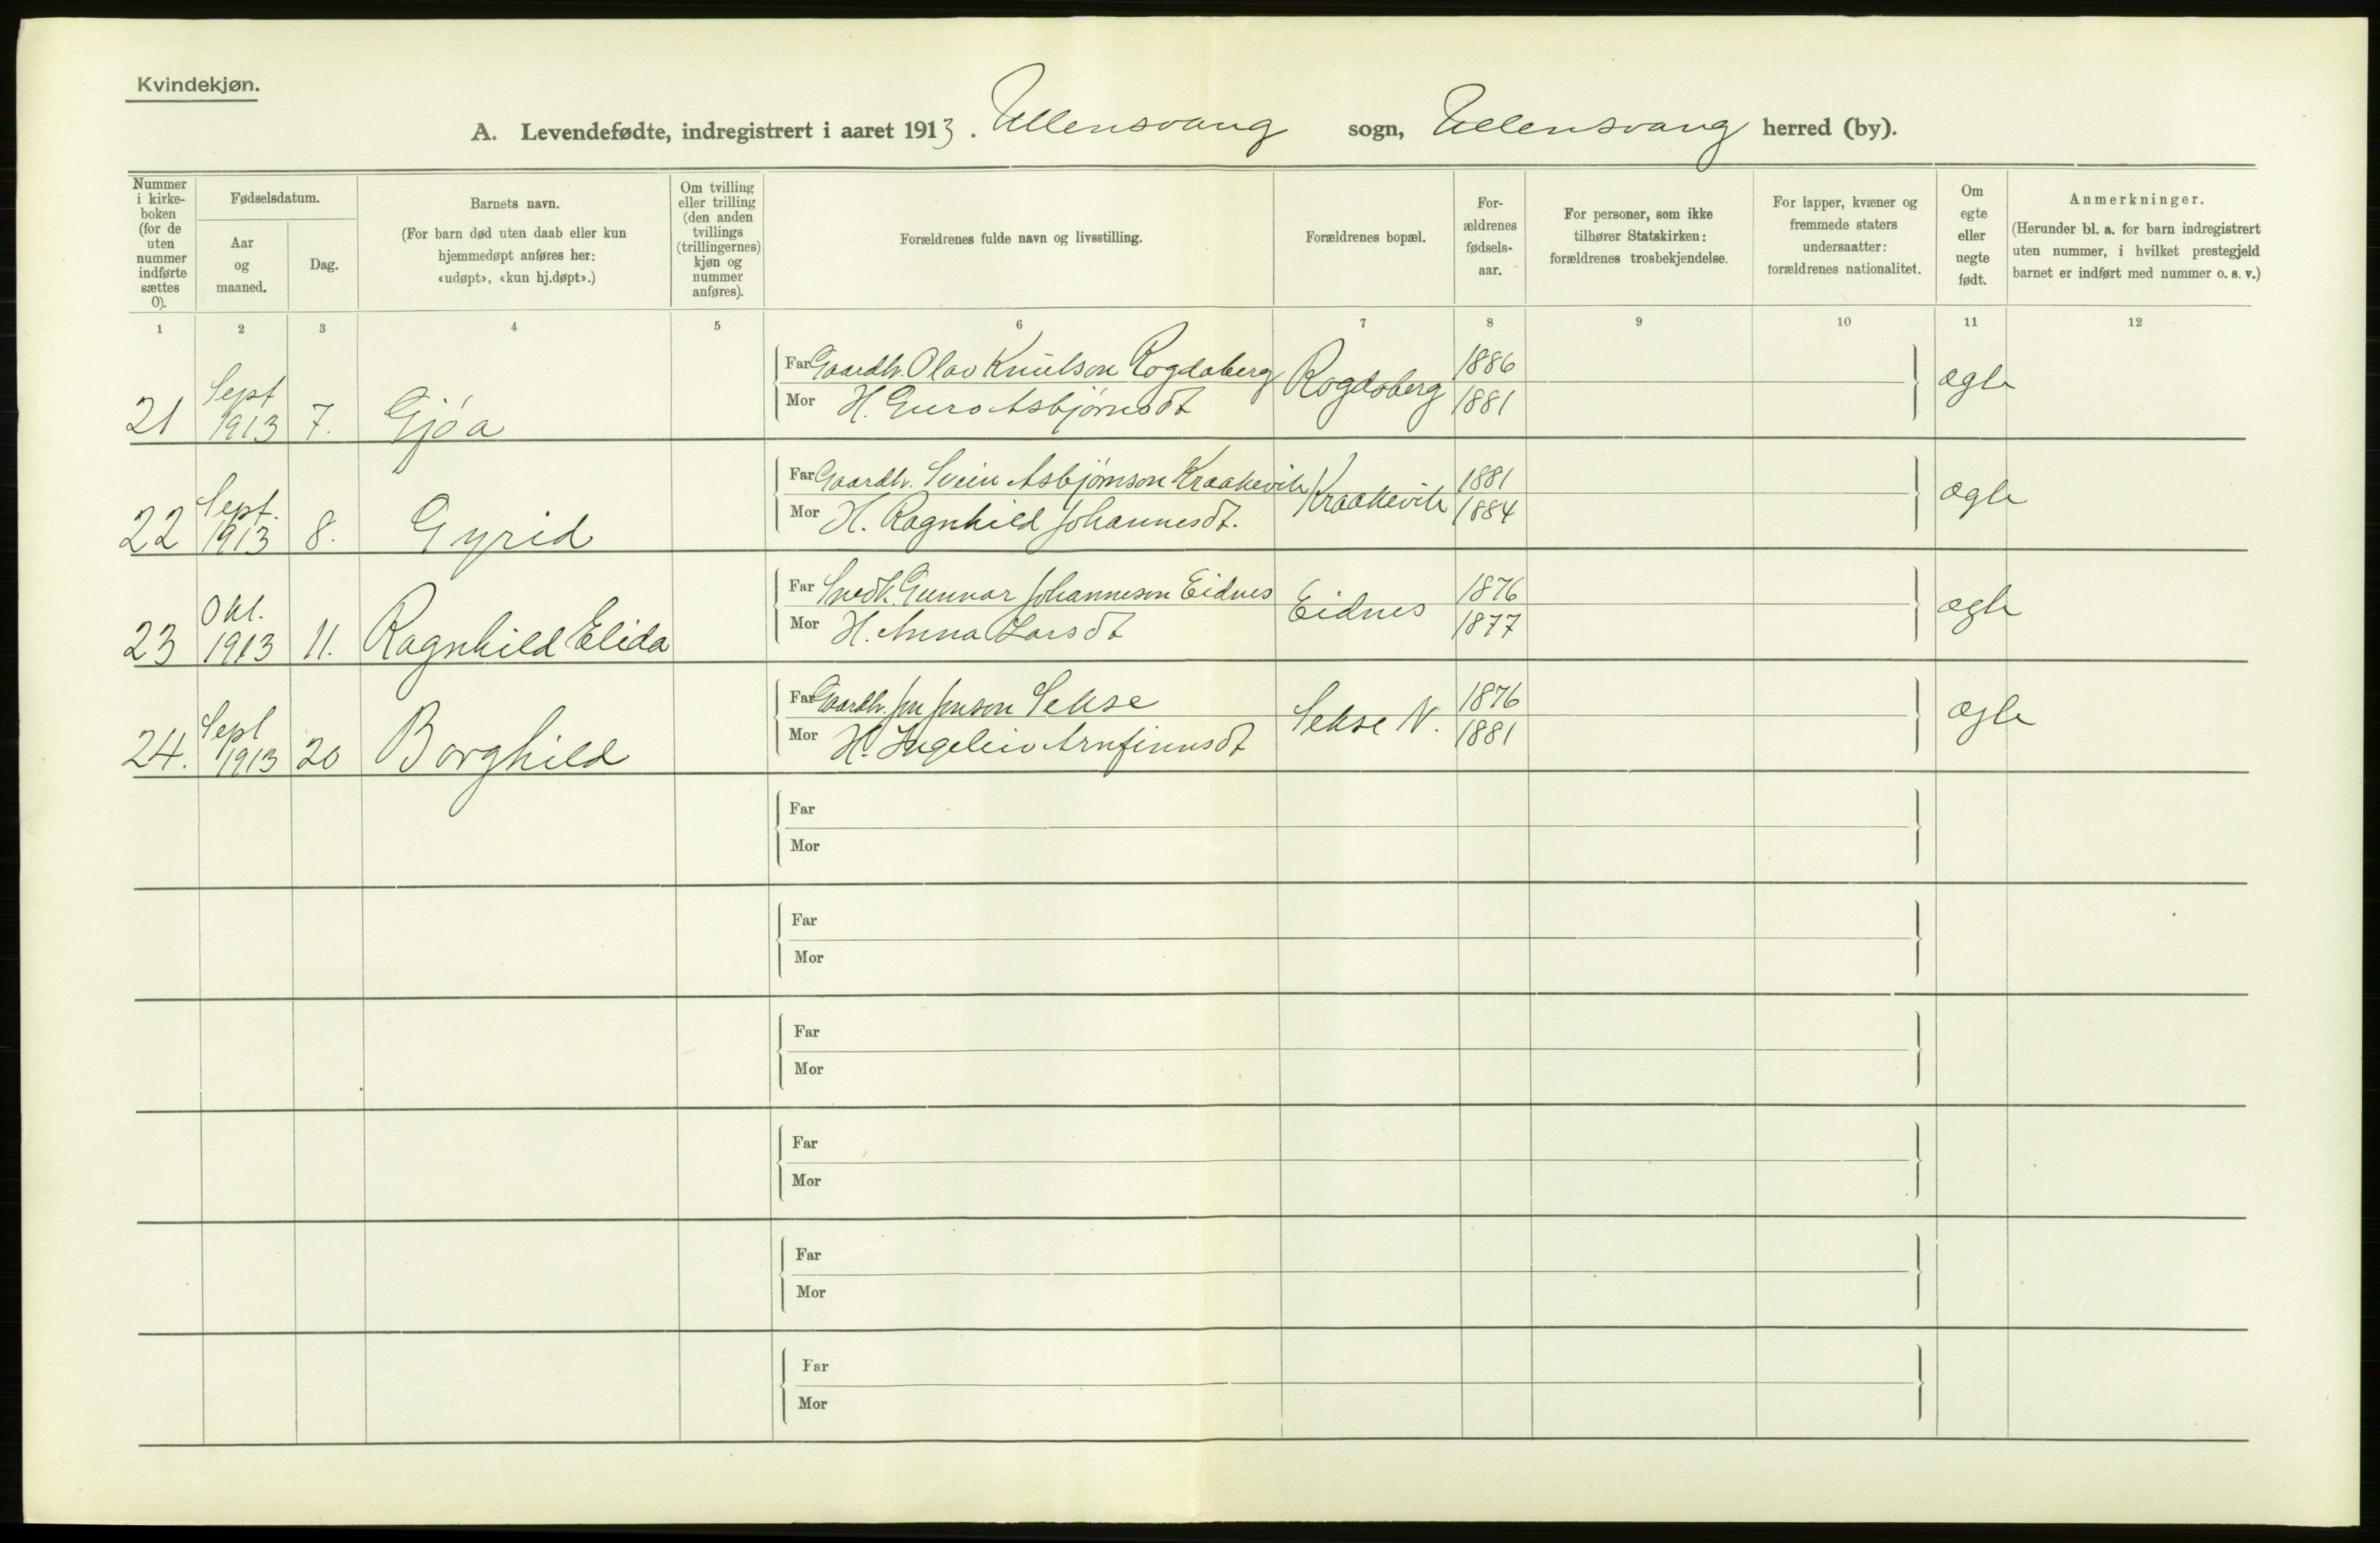 Kvindekjøn.
A. Levendefødte, indregistrert i aaret 1913. Ullensvang sogn, Ullensvang herred (by).
Nummer i kirke-boken (for de uten nummer indførte sættes 0).
Fødselsdatum.
Aar og maaned.
Dag.
Barnets navn.
(For barn død uten daab eller kun hjemmedøpt anføres her: «udøpt», «kun hj.døpt».)
Om tvilling eller trilling (den anden tvillings (trillingernes) kjøn og nummer anføres).
Forældrenes fulde navn og livsstilling.
Forældrenes bopæl.
For-ældrenes fødsels-aar.
For personer, som ikke tilhører Statskirken: forældrenes trosbekjendelse.
For lapper, kvæner og fremmede staters undersaatter: forældrenes nationalitet.
Om egte eller uegte født.
Anmerkninger.
(Herunder bl. a. for barn indregistrert uten nummer, i hvilket prestegjeld barnet er indført med nummer o. s. v.)
1 2 3 4 5 6 7 8 9 10 11 12
21 Sept 1913 7. Gjóa
Far Gaardbr. Olav Knutson Rogdaberg Rogdaberg 1886 ægte
Mor H. Guro Asbjørnsdt 1881
22 Sept. 1913 8. Gyrid
Far Gaardbr. Svein Asbjørnson Kraakevik Kraakevik 1881 ægte
Mor H. Ragnhild Johannesdt. 1884
23 Okt. 1913 11. Ragnhild Elida
Far Snedk. Gunnar Johanneson Eidnes Eidnes 1876 ægte
Mor H. Anna Larsdt 1877
24. Sept 1913 20 Borghild
Far Gaardbr. Jon Jonson Sekse Sekse N. 1876 ægte
Mor H. Ingeleiv Arnfinnsdt 1881
Far
Mor
Far
Mor
Far
Mor
Far
Mor
Far
Mor
Far
Mor